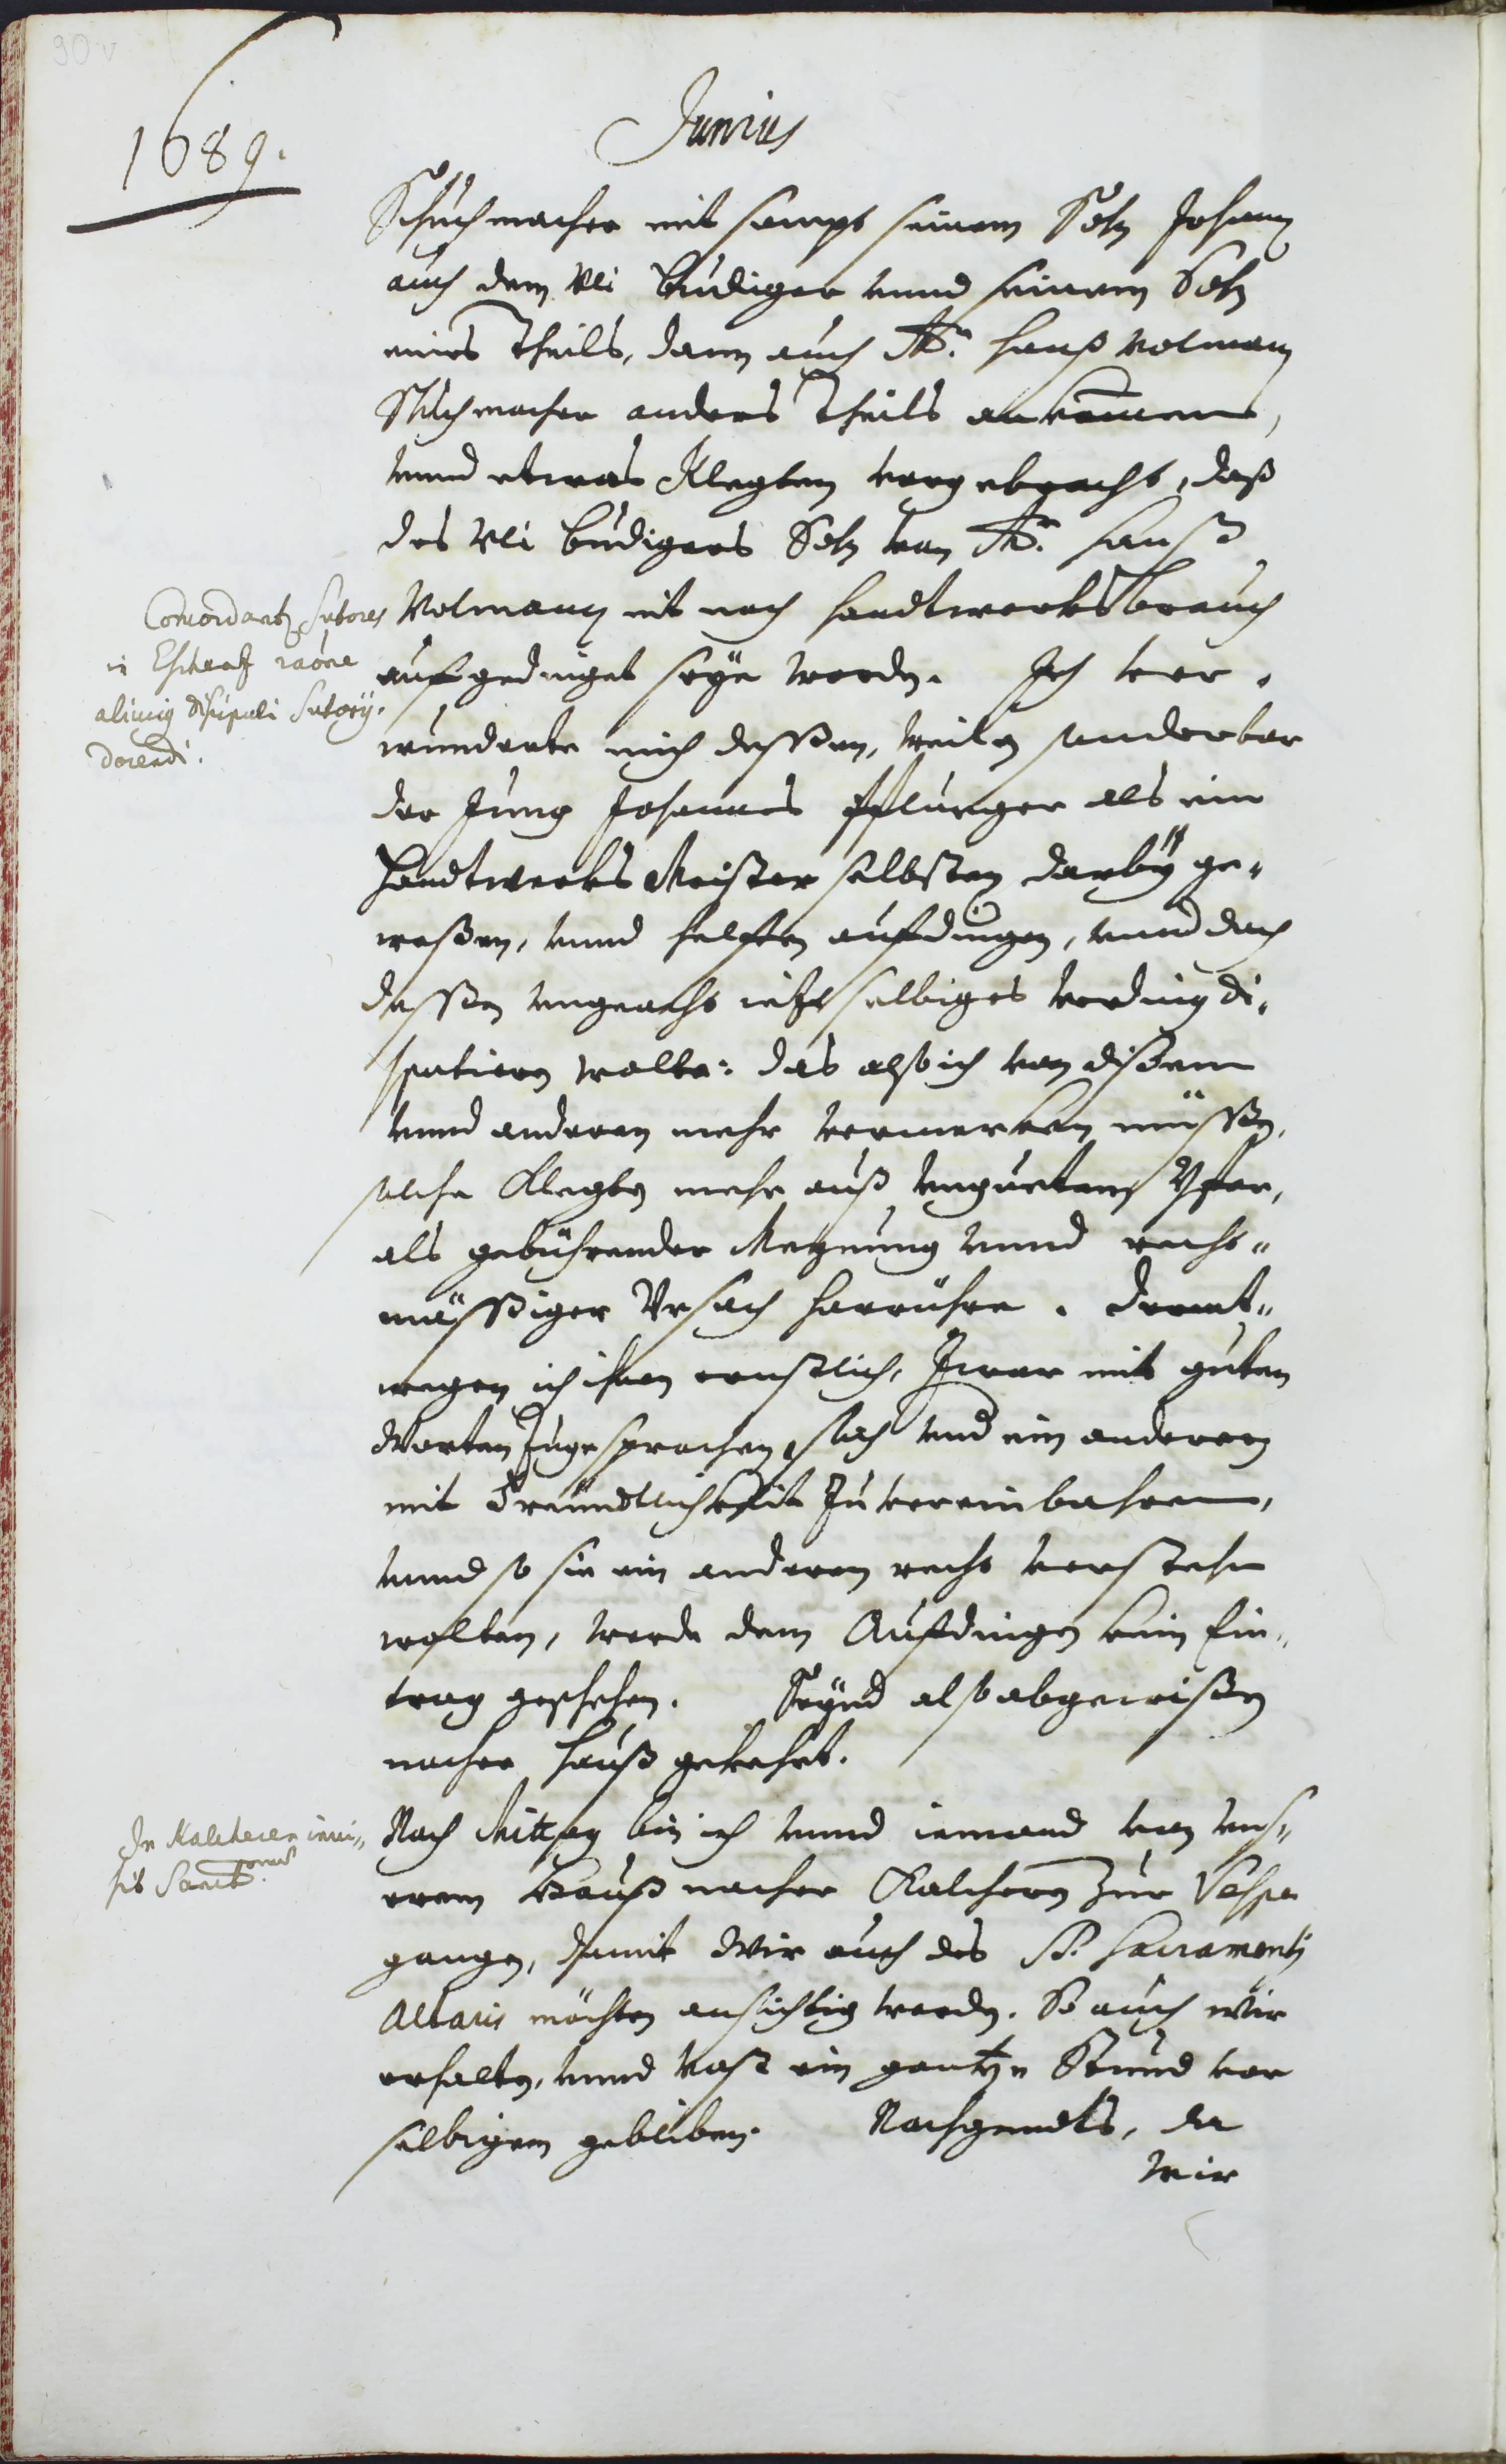 90v
1689.
Junius
Schuchmacher mit sampt seinem Sohn Johann
auch dem Uli Budiger unnd seinem Sohn
eines Theils, dann auch Mr. Hanß Volmann
Schuchmacher anders Theils ankommen,
unnd etwas Klegten vorgebracht, daß
des Uli Budigers Sohn von Mr. Hanß
Volmann nit nach Handtwerks Brauch
aufgedinget seye worden. Ich ver-
wunderte mich dessen, weilen sonderbar
der Jung Johannes Pflueger als ein
Handtwerks Meister selbsten darbÿ ge-
weßen, unnd helffen aufdingen, unnd doch
dessen ungeacht ietzt selbiges Verding di-
sputieren wolte: das also ich von dißem
unnd anderen mehr vermerken müssen,
solche Klegten mehr auß unguetem Yfer,
als gebührender Meynung unnd recht-
mässiger Ursach harrühre. Deret-
wegen ich ihnen ernstlich, zwar mit guten
Worten zugesprochen, sich und ein anderen
mit Freündtlichkeit zu vereinbahren,
unnd so sie ein anderen recht verstehn
wolten, werde dem Aufdingen kein Ein-
trag geschehen. Seynd also abgewißen
nacher Hauß gekehrt.
Nach Mittag bin ich unnd iemand von uns-
erem Hauß nacher Kalcheren zur Vesper
gangen, damit Wir auch des SS. Sacramenti
Altaris möchten ansichtig werden. So auch wir
erhalten, unnd vast ein gantze Stund vor
selbigem gebliben. Nachgendts, da
wir
Concordantur Sutores
in Eschentz raône
alicuius discipuli Sutorij
docendi.
In Kalcheren invi-
sit Sanct. omus